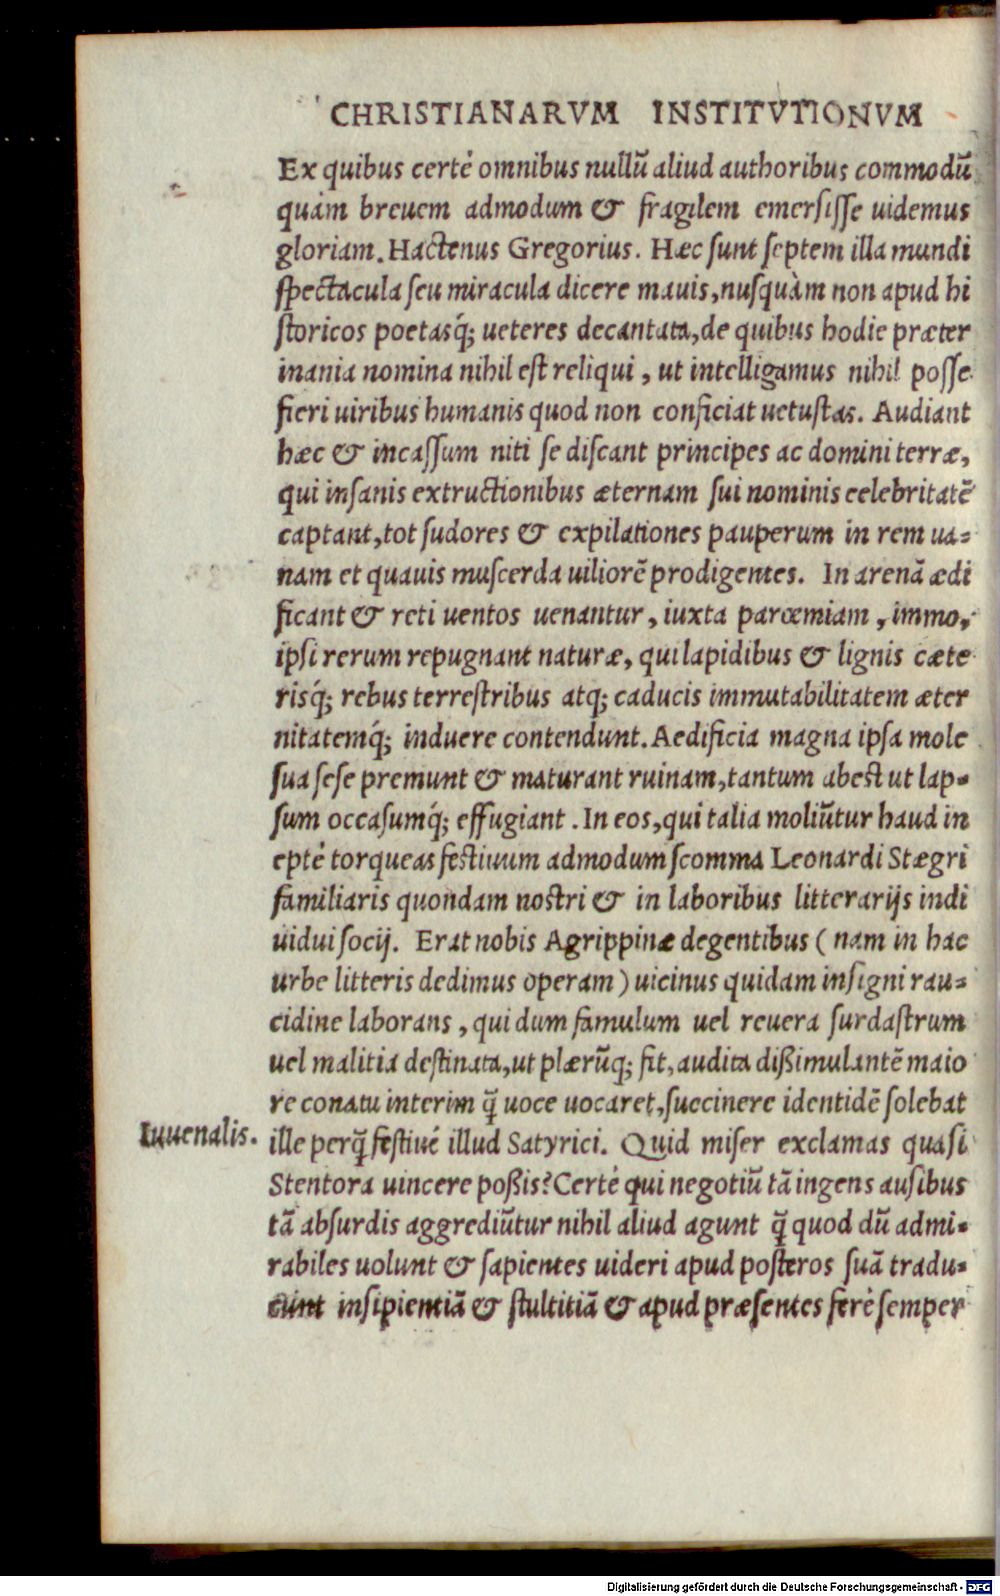 CHRISTIANARVM INSTITVTIONVM
Ex quibus certè omnibus nullũ aliud authoribus commodũ
quàm breuem admodum & fragilem emersisse uidemus
gloriam. Hactenus Gregorius. Hæc sunt septem illa mundi
spectacula seu miracula dicere mauis, nusquàm non apud hi
storicos poetasq́; ueteres decantata, de quibus hodie præter
inania nomina nihil est reliqui, ut intelligamus nihil posse
fieri uiribus humanis quod non conficiat uetustas. Audiant
hæc & incassum niti se discant principes ac domini terræ,
qui insanis extructionibus æternam sui nominis celebritatẽ
captant, tot sudores & expilationes pauperum in rem ua-
nam et quauis muscerda uiliorẽ prodigentes. In arenã ædi
ficant & reti uentos uenantur, iuxta parœmiam, immo,
ipsi rerum repugnant naturæ, qui lapidibus & lignis cæte
risq́; rebus terrestribus atq; caducis immutabilitatem æter
nitatemq́; induere contendunt. Aedificia magna ipsa mole
sua sese premunt & maturant ruinam, tantum abest ut lap-
sum occasumq́; effugiant. In eos, qui talia moliũtur haud in
eptè torqueas festiuum admodum scomma Leonardi Stægri
familiaris quondam nostri & in laboribus litterarijs indi
uidui socij. Erat nobis Agrippinæ degentibus (nam in hac
urbe litteris dedimus operam) uicinus quidam insigni rau-
cidine laborans, qui dum famulum uel reuera surdastrum
uel malitia destinata, ut plærũq; fit, audita dißimulantẽ maio
re conatu interim q̃ uoce uocaret, succinere identidẽ solebat
Iuuenalis.
ille perq̃ festiuè illud Satyrici. Quid miser exclamas quasi
Stentora uincere poßis? Certè qui negotiũ tã ingens ausibus
tã absurdis aggrediũtur nihil aliud agunt q̃ quod dũ admi-
rabiles uolunt & sapientes uideri apud posteros suã tradu-
cunt insipientiã & stultitiã & apud præsentes ferè semper
Digitalisierung gefördert durch die Deutsche Forschungsgemeinschaft - DFG